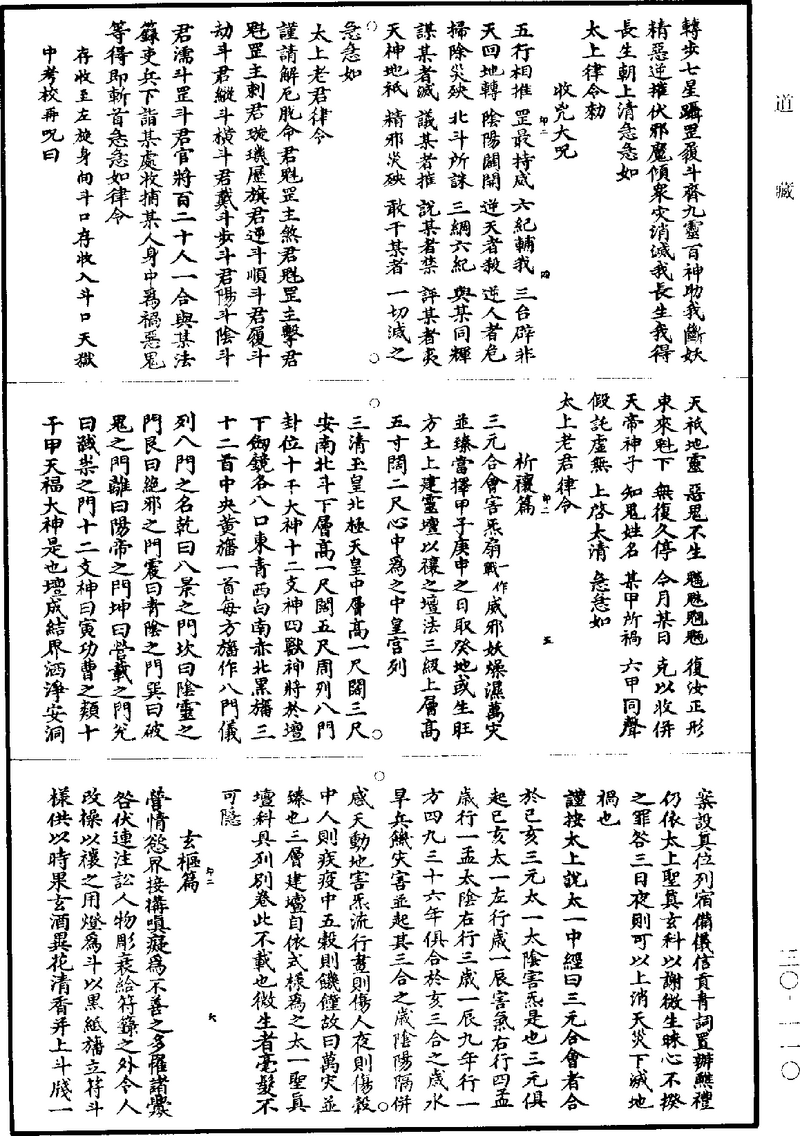 道藏
轉步七星躡罡履斗齊九靈百神助我斷妖
精惡逆摧伏邪魔傾眾灾消滅我長生我得
長生朝上清急急如
太上律令勑
收兇大咒
五行相推 罡最持威 六紀輔我 三台辟非
天回地轉 陰陽闢開 逆天者殺 逆人者危
掃除災殃 北斗所誅 三綱六紀 與某同輝
謀某者滅 議某者摧 說某者禁 評某者夷
天神地祇 精邪災殃 敢干某者 一切滅之
急急如
太上老君律令
謹請解厄脫命君魁罡主煞君魁罡主擊君
魁罡主刺君璇璣歷旗君逆斗順斗君履斗
劫斗君縱斗橫斗君戴斗步斗君陽斗陰斗
君濡斗罡斗君官將百二十人一合與某法
籙吏兵下詣某處收捕某人身中為禍惡鬼
等得即斬首急急如律令
存收至左旋身向斗口存收入斗口天獄
中考校再咒曰
天祇地靈 惡鬼不生 復汝正形
東來魁下 無復久停 令月某日 克以收併
天帝神子 知鬼姓名 某甲所禍 六甲同聲
假託虛無 上啓太清 急急如
太上老君律令
祈禳篇
三元合會害炁扇戰一作威邪妖燥濕萬灾
並臻當擇甲子庚申之日取癸地或生旺
方土上建靈壇以禳之壇法三級上層高
五寸闊二尺心中為之中皇宮列
三清玉皇北極天皇中層高一尺闊三尺
安南北斗下層高一尺闊五尺周列八門
卦位十干大神十二支神四獸神將於壇
下劒鏡各八口東青西白南赤北黑旛三
十二首中央黃旛一首每方旛作八門儀
列八門之名乾曰八景之門坎曰陰靈之
門艮曰絕邪之門震曰青陰之門巽曰破
鬼之門離曰陽帝之門坤曰營載之門兌
曰誐祟之門十二支神曰寅功曹之類十
干甲天福大神是也壇成結界洒淨安洞
案設真位列宿備儀信貢青詞置辦醮禮
仍依太上聖真玄科以謝微生昧心不揆
之罪咎三日夜則可以上消天災下滅地
禍也
謹按太上說太一中經曰三元合會者合
於己亥三元太一太陰害炁是也三元俱
起己亥太一左行歲一辰害氣右行四孟
歲行一孟太陰右行三歲一辰九年行一
方四九三十六年俱合於亥三合之歲水
旱兵饑灾害並起其三合之歲陰陽隔併
感天動地害炁流行晝則傷人夜則傷穀
中人則疾疫中五穀則饑饉故曰萬灾並
臻也三層建壇自依式樣為之太一聖真
壇科具列別卷此不載也微生者毫髮不
可隱
玄樞篇
營情慾界接搆嗔癡為不善之多羅諸釁
咎伏連注訟人物彫衰給符籙之外令人
改操以禳之用燈為斗以黑紙旛立符斗
樣供以時果玄酒異花清香并上斗牋一
三〇-一一〇